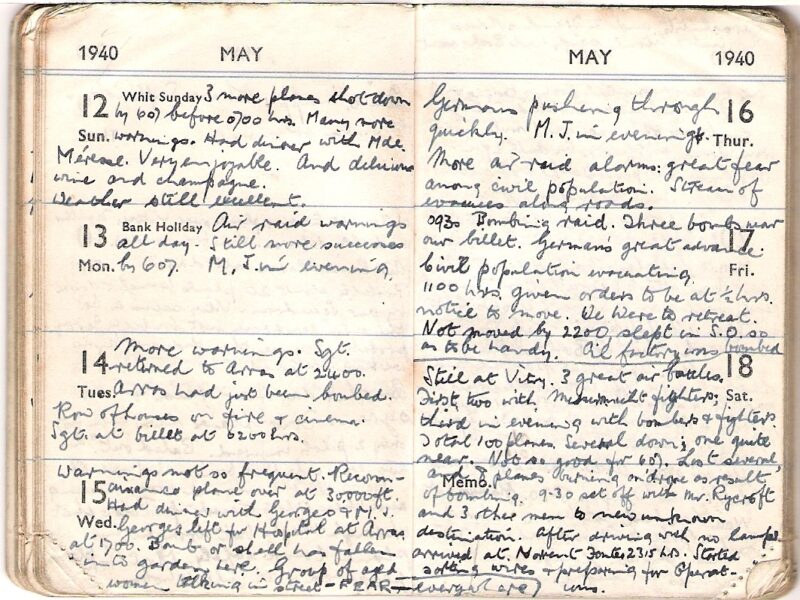 1940 MAY
12 Whit Sunday 3 more planes shot down
by 607 before 0700 hrs. Many more
Sun. warnings. Had dinner with Mde.
Méresse. Very enjoyable. And delicious
wine and champagne.
Weather still excellent.
13 Bank Holiday Air raid warnings
all day. Still more successes
Mon. by 607. M.J. in evening.
14 More warnings. Sgt.
returned to Arras at 2400.
Tues. Arras had just been bombed.
Row of houses on fire + cinema.
Sgt. at billet at 0200 hrs.
Warnings not so frequent. Reconn-
15 plane over at 30,000 ft.
Had dinner with Georges + M.J.
Wed. Georges left for Hospital at Arras
at 1700. Bomb or shell has fallen
in garden here. Group of aged
women talking in street - FEAR - everywhere
MAY 1940
Germans pushing through 16
quickly. M.J. in evening. Thur.
More air-raid alarms: great fear
among civil population. Stream of
evacuees along roads.
0930 Bombing raid. Three bombs near
our billet. German's great advance. 17
Civil population evacuating. Fri.
1100 hrs. given orders to be at ½ hrs.
notice to move. We were to retreat.
Not moved by 2200 slept in S.O. so
as to be handy. Oil factory was bombed
18
Still at Vitry. 3 great air battles.
First two with Messerschmitt fighters; Sat.
third in evening with bombers + fighters
Total 100 planes. Several down; one quite
near. Not so good for 607. Lost several,
and planes burning on 'drome as result
Memo. of bombing. 9-30 set off with Mr. Rycroft
and 3 other men to new unknown
destination. After driving with no lamps
arrived at Noreent Fontes 2315 hrs. Started
sorting wires + preparing for operat-
ions.